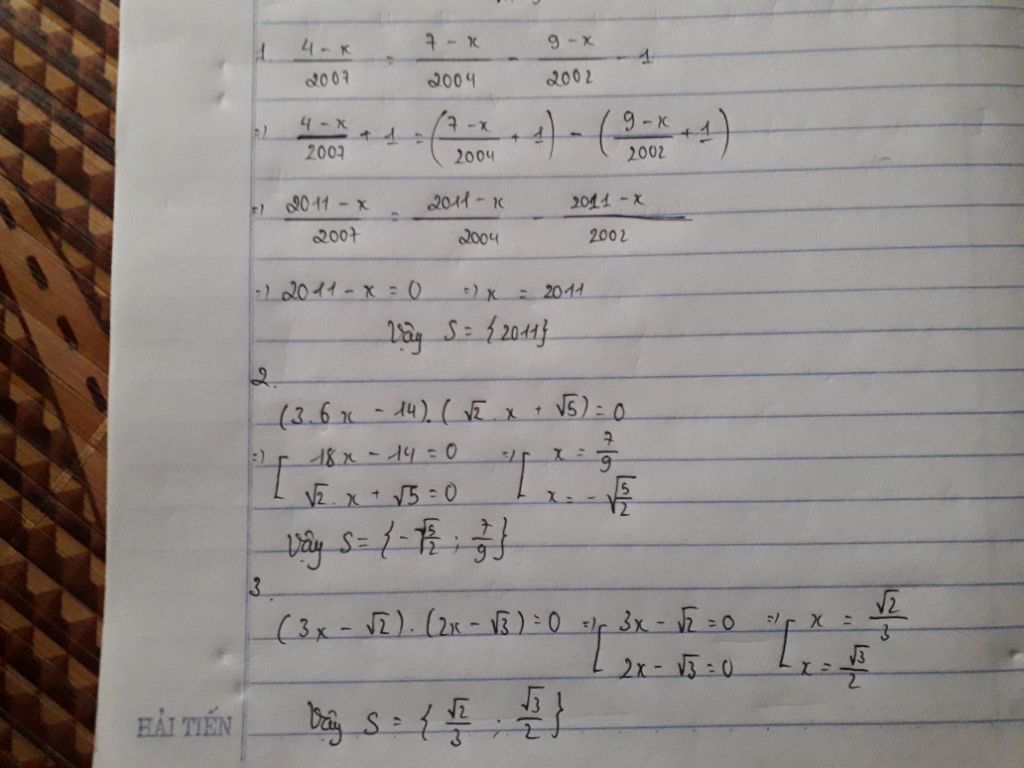 1. (4 - x)/2007 = (7 - x)/2004 - (9 - x)/2002 - 1
=> (4 - x)/2007 + 1 = ((7 - x)/2004 + 1) - ((9 - x)/2002 + 1)
=> (2011 - x)/2007 = (2011 - x)/2004 - (2011 - x)/2002
=> 2011 - x = 0 => x = 2011
Vậy S = {2011}
2.
(3.6x - 14).(√2.x + √5) = 0
=> [ 18x - 14 = 0 => [ x = 7/9
√2.x + √5 = 0 x = -√(5/2)
Vậy S = {-√(5/2) ; 7/9}
3.
(3x - √2).(2x - √3) = 0 => [ 3x - √2 = 0 => [ x = √2/3
2x - √3 = 0 x = √3/2
Vậy S = {√2/3 ; √3/2}
HẢI TIẾN